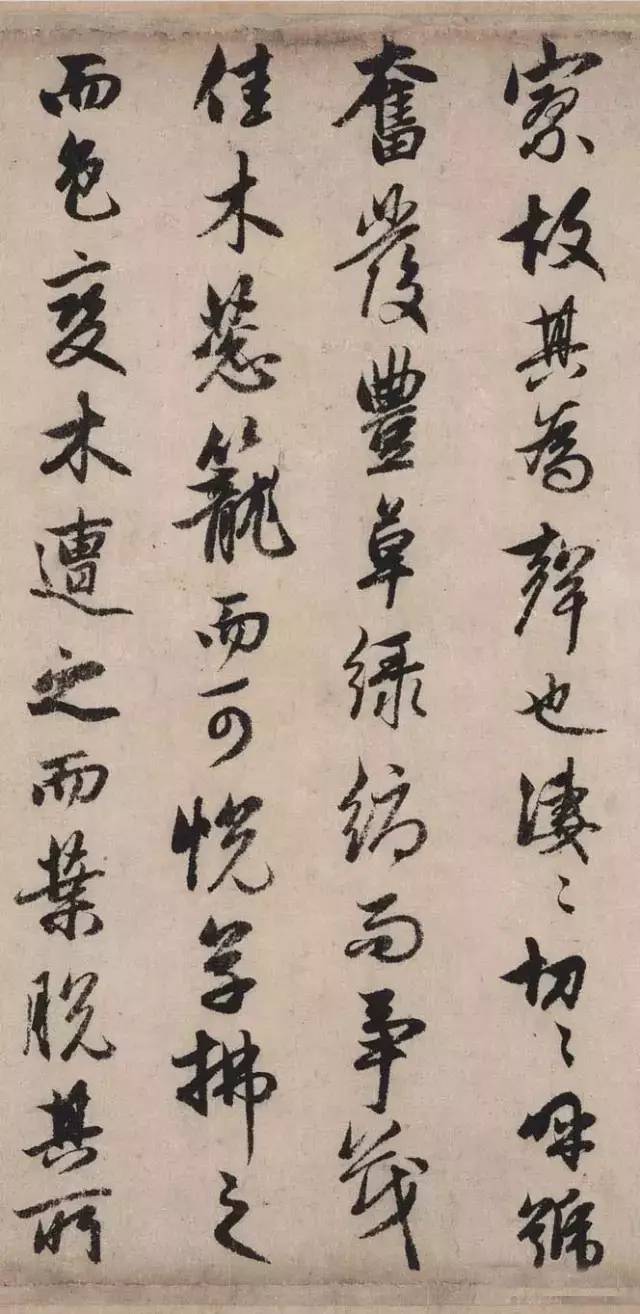 寥故其為聲也淒〻切〻呼號
奮發豐草綠縟而爭茂
佳木蔥籠而可悅草拂之
而色變木遭之而葉脫其所